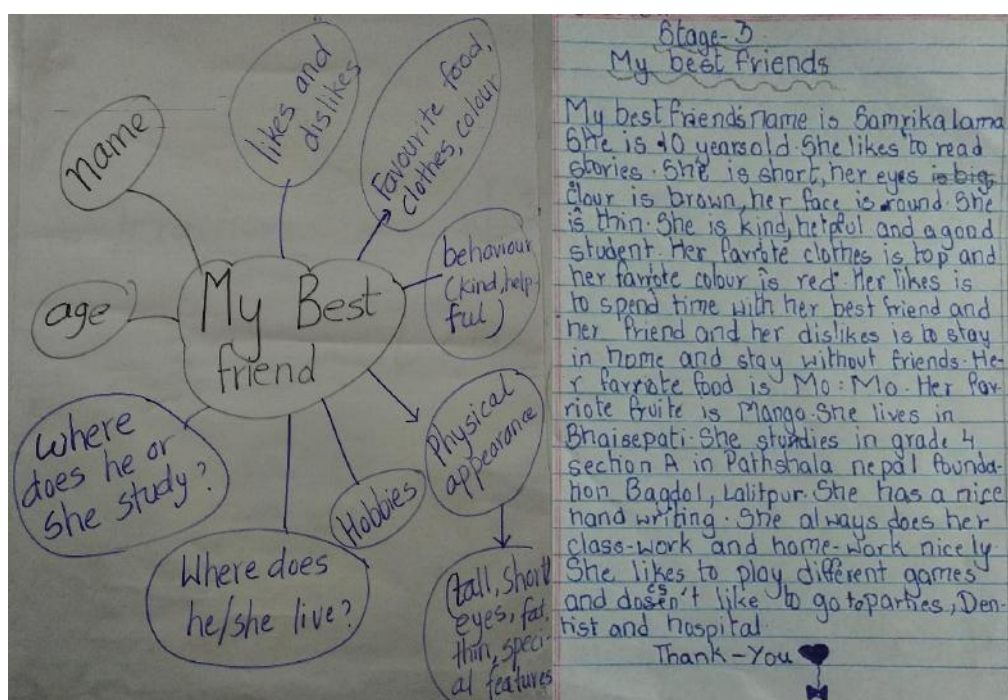 name
likes and
dislikes
Favourite food,
clothes, colour
behaviour
(kind, help-
ful)
My Best
friend
age
Where
does he or
she study?
Where does
he/she live?
Hobbies
Physical
appearance
(tall, short
eyes, fat,
thin, speci-
al features
Stage-3
My best friends
My best friends name is Samrika lama
She is 10 years old. She likes to read
stories. She is short, her eyes is big,
clour is brown, her face is round. She
is thin. She is kind, helpful and a good
student. Her favrote clothes is top and
her favrote colour is red. Her likes is
to spend time with her best friend and
her friend and her dislikes is to stay
in home and stay without friends. He-
r favriote food is Mo:Mo. Her fav-
riote fruite is Mango. She lives in
Bhaisepati. She studies in grade 4
section A in Pathshala nepal founda-
tion Bagdol, Lalitpur. She has a nice
hand writing. She always does her
class-work and home-work nicely
She likes to play different games
and doesn't like to go to parties, Den
tist and hospital.
Thank-You